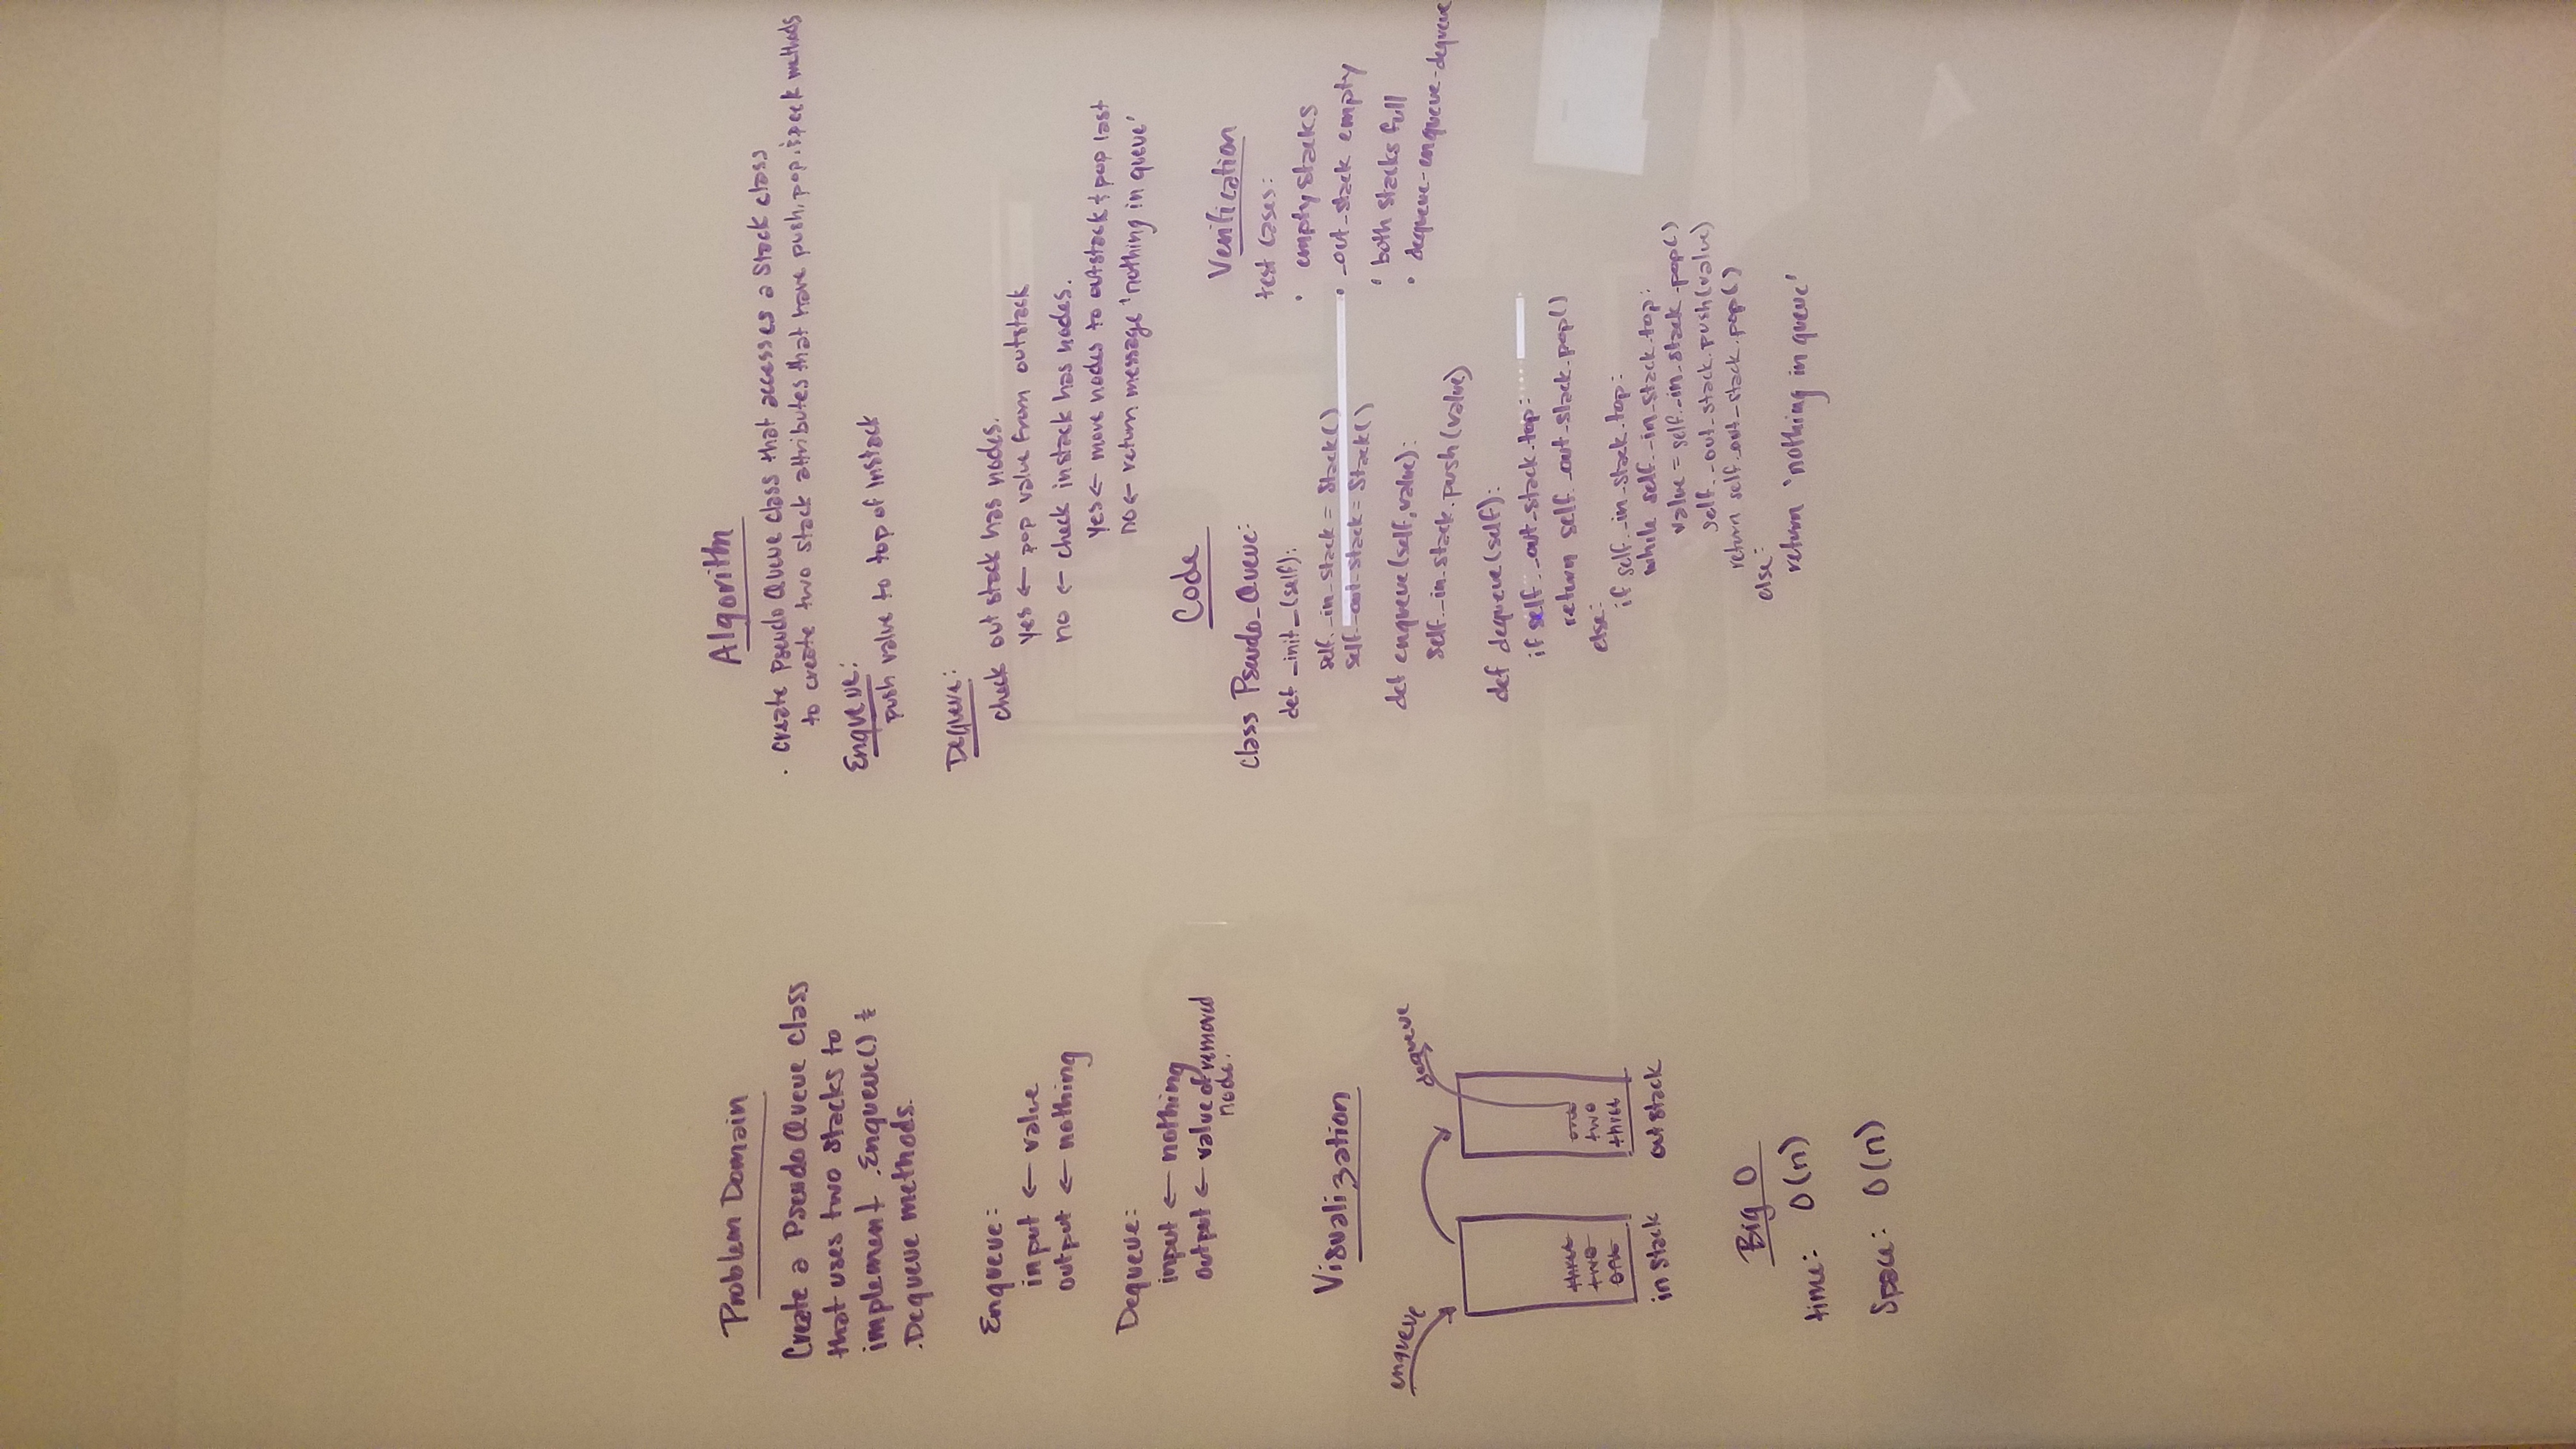 Problem Domain
Create a Pseudo Queue class
that uses two stacks to
implement .Enqueue() &
.Dequeue methods.
Enqueue:
input ← value
output ← nothing
Dequeue:
input ← nothing
output ← value of removed
node.
Visualization
enqueue
dequeue
three
two
one
in stack
one
two
three
out stack
Big O
time: O(n)
Space: O(n)
Algorithm
. Create Pseudo Queue class that accesses a Stack class
to create two stack attributes that have push, pop, & peek methods
Enqueue:
push value to top of Instack
Dequeue:
check out stack has nodes.
yes ← pop value from outstack
no ← check instack has nodes.
yes ← move nodes to outstack & pop last
no ← return message 'nothing in queue'
Code
class Pseudo_Queue:
def _init_(self):
self._in_stack = Stack()
self._out_stack = Stack()
def enqueue(self, value):
self._in_stack.push(value)
def dequeue(self):
if self._out_stack.top:
return self._out_stack.pop()
else:
if self._in_stack.top:
while self._in_stack.top:
value = self._in_stack.pop()
self._out_stack.push(value)
return self._out_stack.pop()
else:
return 'nothing in queue'
Verification
test cases:
• empty stacks
• _out_stack empty
• both stacks full
• dequeue-enqueue-dequeue